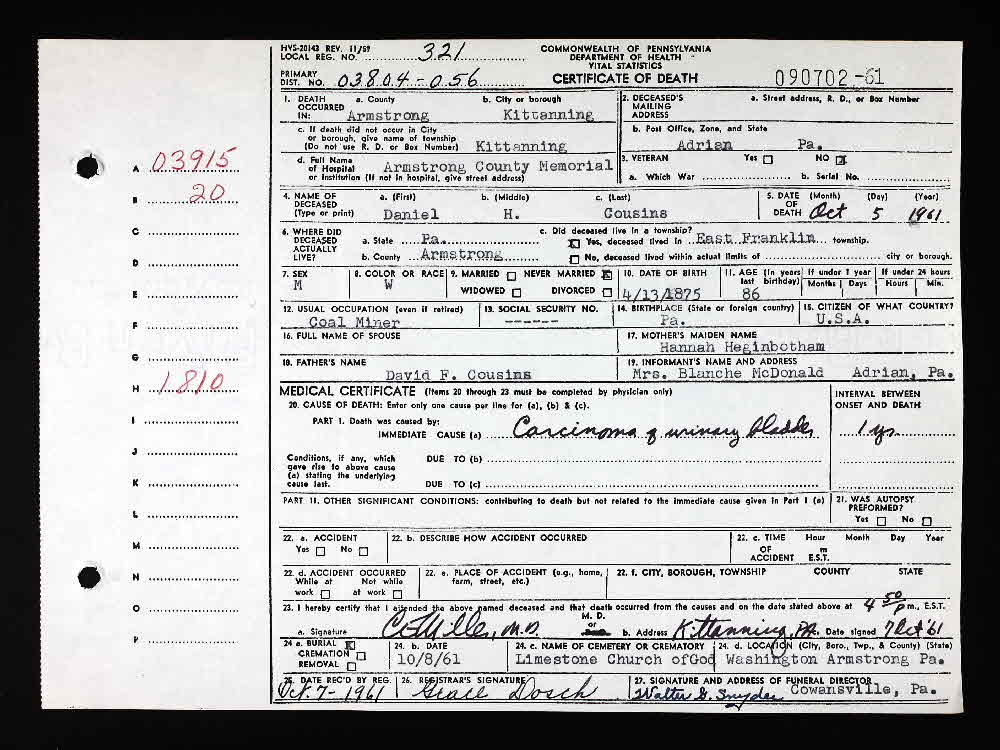 HVS-20143 REV. 11/59
LOCAL REG. NO. 321
COMMONWEALTH OF PENNSYLVANIA
DEPARTMENT OF HEALTH
VITAL STATISTICS
PRIMARY
DIST. NO. 03804-056
CERTIFICATE OF DEATH
090702-61
1. DEATH OCCURRED IN:
a. County
Armstrong
b. City or borough
Kittanning
2. DECEASED'S MAILING ADDRESS
a. Street address, R. D., or Box Number
c. If death did not occur in City
or borough, give name of township
(Do not use R. D. or Box Number) Kittanning
b. Post Office, Zone, and State
Adrian Pa.
d. Full Name
of Hospital
or Institution (If not in hospital, give street address)
Armstrong County Memorial
3. VETERAN Yes NO X
a. Which War b. Serial No.
4. NAME OF DECEASED
(Type or print)
a. (First) b. (Middle) c. (Last)
Daniel H. Cousins
5. DATE OF DEATH (Month) (Day) (Year)
Oct 5 1961
6. WHERE DID DECEASED ACTUALLY LIVE?
a. State Pa.
b. County Armstrong
c. Did deceased live in a township?
X Yes, deceased lived in East Franklin township.
No, deceased lived within actual limits of city or borough.
7. SEX
M
8. COLOR OR RACE
W
9. MARRIED NEVER MARRIED X
WIDOWED DIVORCED
10. DATE OF BIRTH
4/13/1875
11. AGE (In years last birthday)
86
If under 1 year
Months Days
If under 24 hours
Hours Min.
12. USUAL OCCUPATION (even if retired)
Coal Miner
13. SOCIAL SECURITY NO.
------
14. BIRTHPLACE (State or foreign country)
Pa.
15. CITIZEN OF WHAT COUNTRY?
U.S.A.
16. FULL NAME OF SPOUSE
17. MOTHER'S MAIDEN NAME
Hannah Heginbotham
18. FATHER'S NAME
David F. Cousins
19. INFORMANT'S NAME AND ADDRESS
Mrs. Blanche McDonald Adrian, Pa.
MEDICAL CERTIFICATE (Items 20 through 23 must be completed by physician only)
20. CAUSE OF DEATH: Enter only one cause per line for (a), (b) & (c).
INTERVAL BETWEEN
ONSET AND DEATH
PART I. Death was caused by:
IMMEDIATE CAUSE (a) Carcinoma of urinary bladder 1 yr.
Conditions, if any, which
gave rise to above cause
(a) stating the underlying
cause last.
DUE TO (b)
DUE TO (c)
PART II. OTHER SIGNIFICANT CONDITIONS: contributing to death but not related to the immediate cause given in Part I (a)
21. WAS AUTOPSY
PREFORMED?
Yes No
22. a. ACCIDENT
Yes No
22. b. DESCRIBE HOW ACCIDENT OCCURRED
22. c. TIME OF ACCIDENT
Hour Month Day Year
m
E.S.T.
22. d. ACCIDENT OCCURRED
While at work Not while at work
22. e. PLACE OF ACCIDENT (e.g., home,
farm, street, etc.)
22. f. CITY, BOROUGH, TOWNSHIP COUNTY STATE
23. I hereby certify that I attended the above named deceased and that death occurred from the causes and on the date stated above at 4 50 pm., E.S.T.
M. D.
or
a. Signature C E Miller, M.D. b. Address Kittanning, PA. Date signed 7 Oct '61
24 a. BURIAL X
CREMATION
REMOVAL
24. b. DATE
10/8/61
24. c. NAME OF CEMETERY OR CREMATORY
Limestone Church ofGod
24. d. LOCATION (City, Boro., Twp., & County) (State)
Washington Armstrong Pa.
25. DATE REC'D BY REG.
Oct. 7-1961
26. REGISTRAR'S SIGNATURE
Grace Dosch
27. SIGNATURE AND ADDRESS OF FUNERAL DIRECTOR
Walter G. Snyder Cowansville, Pa.
A 03915
B 20
C
D
E
F
G
H 1810
I
J
K
L
M
N
O
P